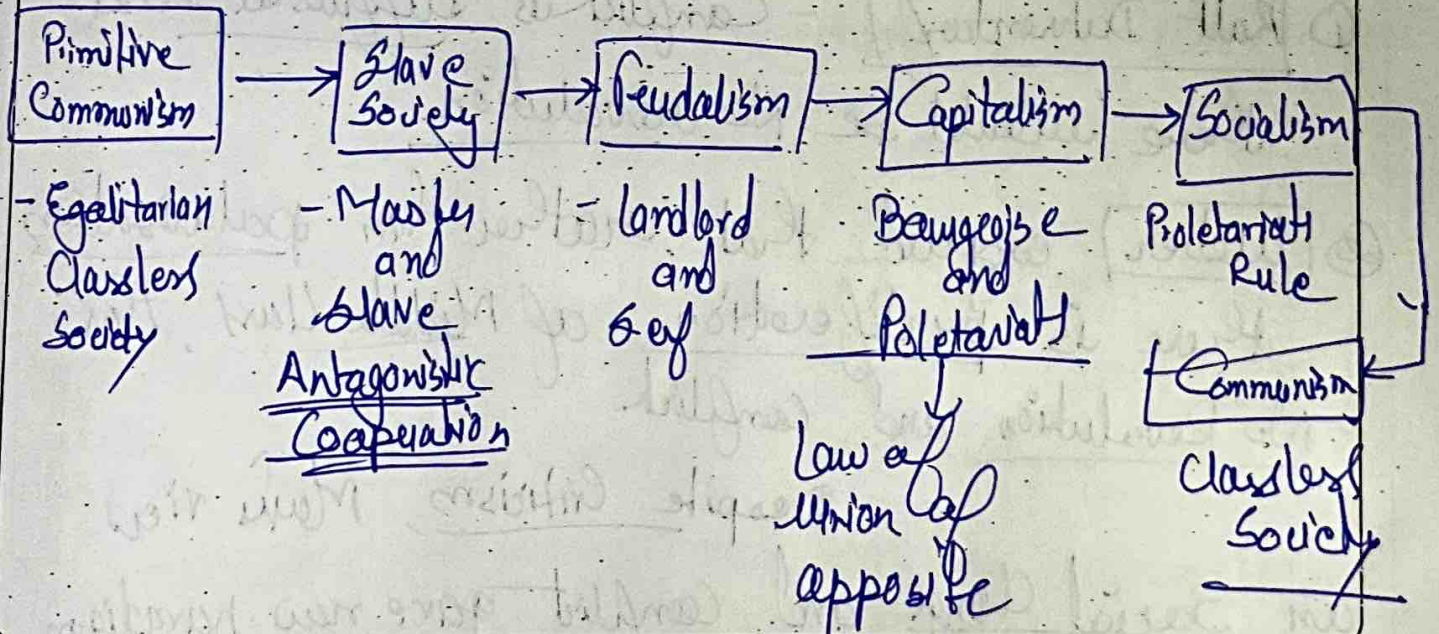 Primitive
Communism
Slave
Society
Feudalism
Capitalism
Socialism
- Egalitarian
Classless
Society
- Master
and
Slave
Antagonistic
Cooperation
- landlord
and
Serf
Bourgeoise
and
Proletariats
Law of
Union of
opposite
Proletariats
Rule
Communism
Classless
Society